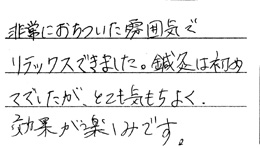 非常におちついた雰囲気で
リラックスできました。鍼灸は初め
てでしたが、とても気もちよく、
効果が楽しみです。